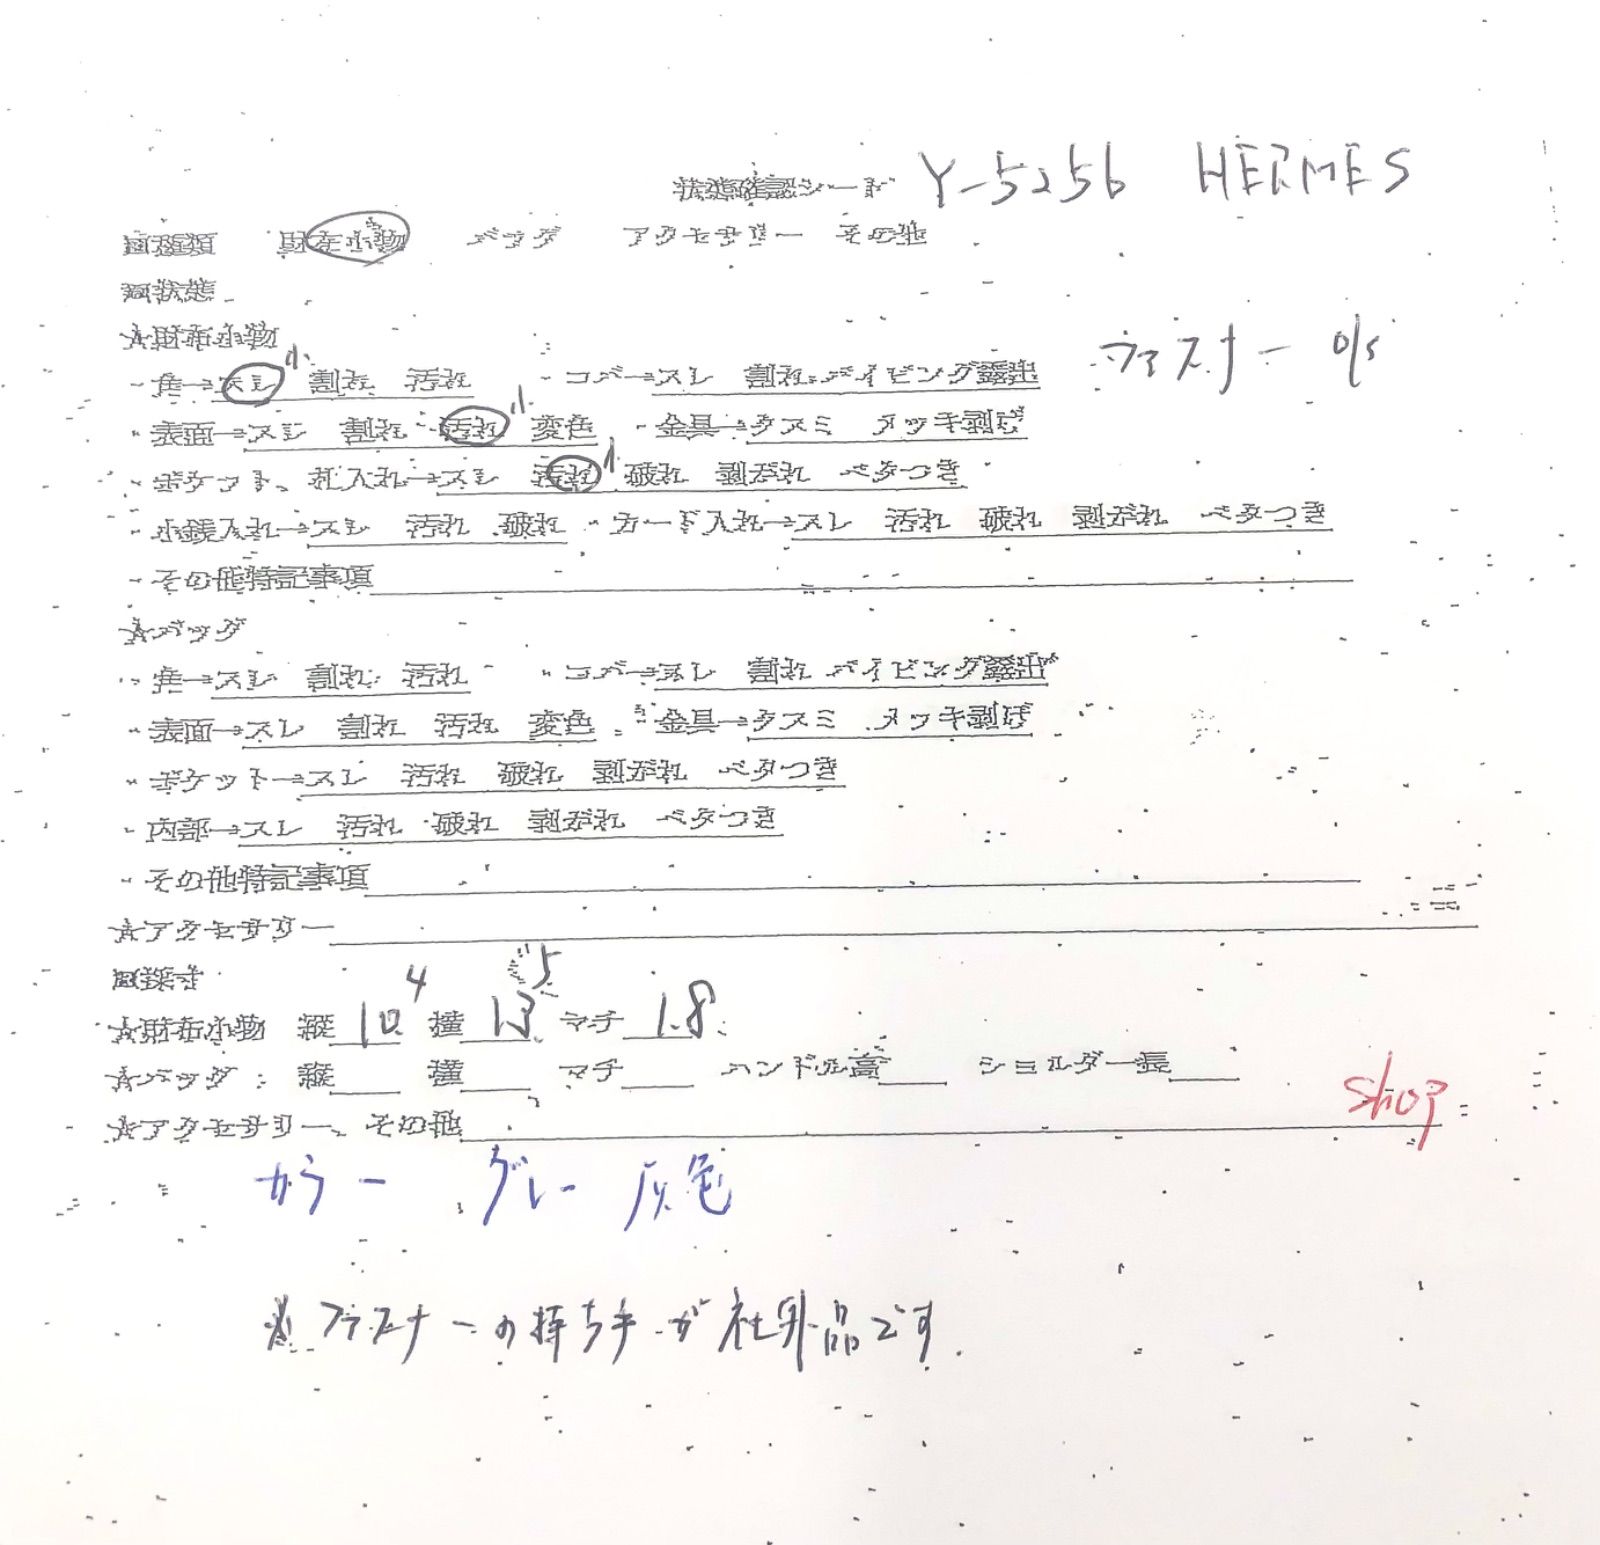 状態確認シート Y-5256 HERMES
■種類 財布小物 バッグ アクセサリー その他
■状態
☆財布小物
・角→スレ小 割れ 汚れ ・コバ→スレ 割れ パイピング露出 ファスナー O/S
・表面→スレ 割れ 汚れ小 変色 ・金具→クスミ メッキ剥げ
・ポケット、札入れ→スレ 汚れ小 破れ 剥がれ ベタつき
・小銭入れ→スレ 汚れ 破れ ・カード入れ→スレ 汚れ 破れ 剥がれ ベタつき
・その他特記事項
☆バッグ
・角→スレ 割れ 汚れ ・コバ→スレ 割れ パイピング露出
・表面→スレ 割れ 汚れ 変色 ・金具→クスミ メッキ剥げ
・ポケット→スレ 汚れ 破れ 剥がれ ベタつき
・内部→スレ 汚れ 破れ 剥がれ ベタつき
・その他特記事項
☆アクセサリー
■採寸
☆財布小物 縦 10.4 横 13.5 マチ 1.8
☆バッグ 縦 横 マチ ハンドル高 ショルダー長
☆アクセサリー、その他 shop
カラー グレー 灰色
※ファスナーの持ち手が社外品です.